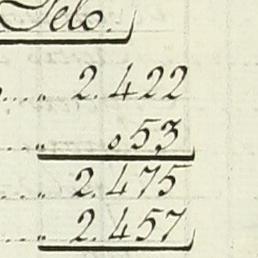 Pelo.
2.422
053
2.475
2.457